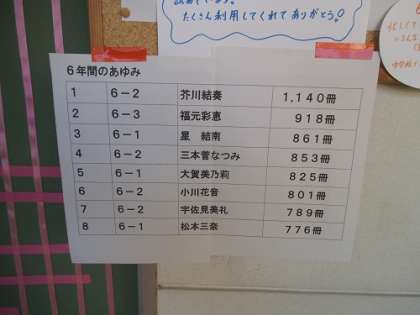 たくさん利用してくれてありがとう!
6年間のあゆみ
1 6-2 芥川結奏 1,140冊
2 6-3 福元彩恵 918冊
3 6-1 星 結南 861冊
4 6-2 三本菅なつみ 853冊
5 6-1 大賀美乃莉 825冊
6 6-2 小川花音 801冊
7 6-2 宇佐見美礼 789冊
8 6-1 松本三奈 776冊